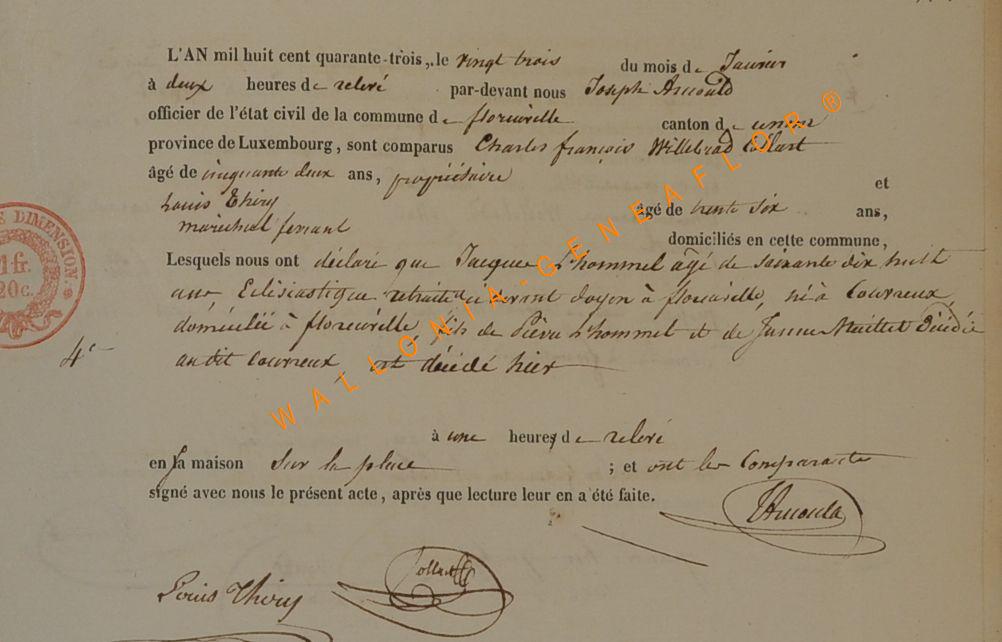 L'AN mil huit cent quarante-trois, le vingt trois du mois de Janvier
à deux heures de relevé par-devant nous Joseph Arnould
officier de l'état civil de la commune de florenville canton d
province de Luxembourg, sont comparus Charles françois Willebrad Collart
âgé de cinquante deux ans, propriétaire et
Louis Thiry âgé de trente six ans,
maréchal ferrant
domiciliés en cette commune,
Lesquels nous ont déclaré que Jacque L'hommel âgé de soixante dix huit
ans Eclésiastique retraité ci devant doyen à florenville, né à Couvreux
domiciliée à florenville, fils de Pierre L'hommel et de Jeanne Maillet Décédée
4e
au dit Couvreux est décédé hier
à une heures de relevé
en la maison sur la place ; et ont les Comparants
signé avec nous le présent acte, après que lecture leur en a été faite.
JArnould
Louis Thiry Collart
DIMENSION.
1 fr.
20 c.
WALLONIA-GENEAFLOR®